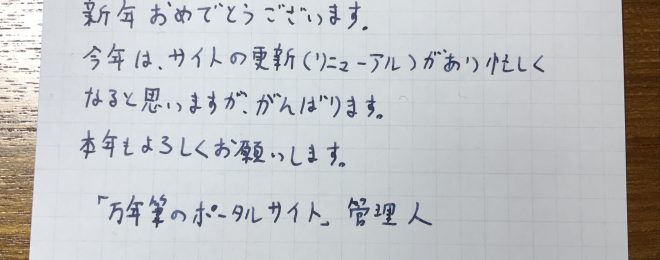 新年おめでとうございます。
今年は、サイトの更新(リニューアル)があり忙しく
なると思いますが、がんばります。
本年もよろしくお願いします。
「万年筆のポータルサイト」管理人